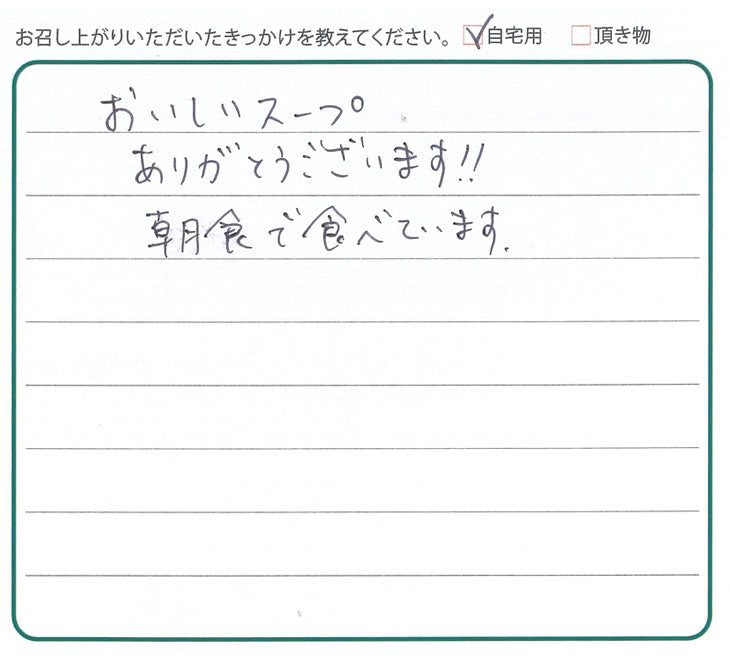 お召し上がりいただいたきっかけを教えてください。 自宅用 頂き物
おいしいスープ
ありがとうございます!!
朝食で食べています.